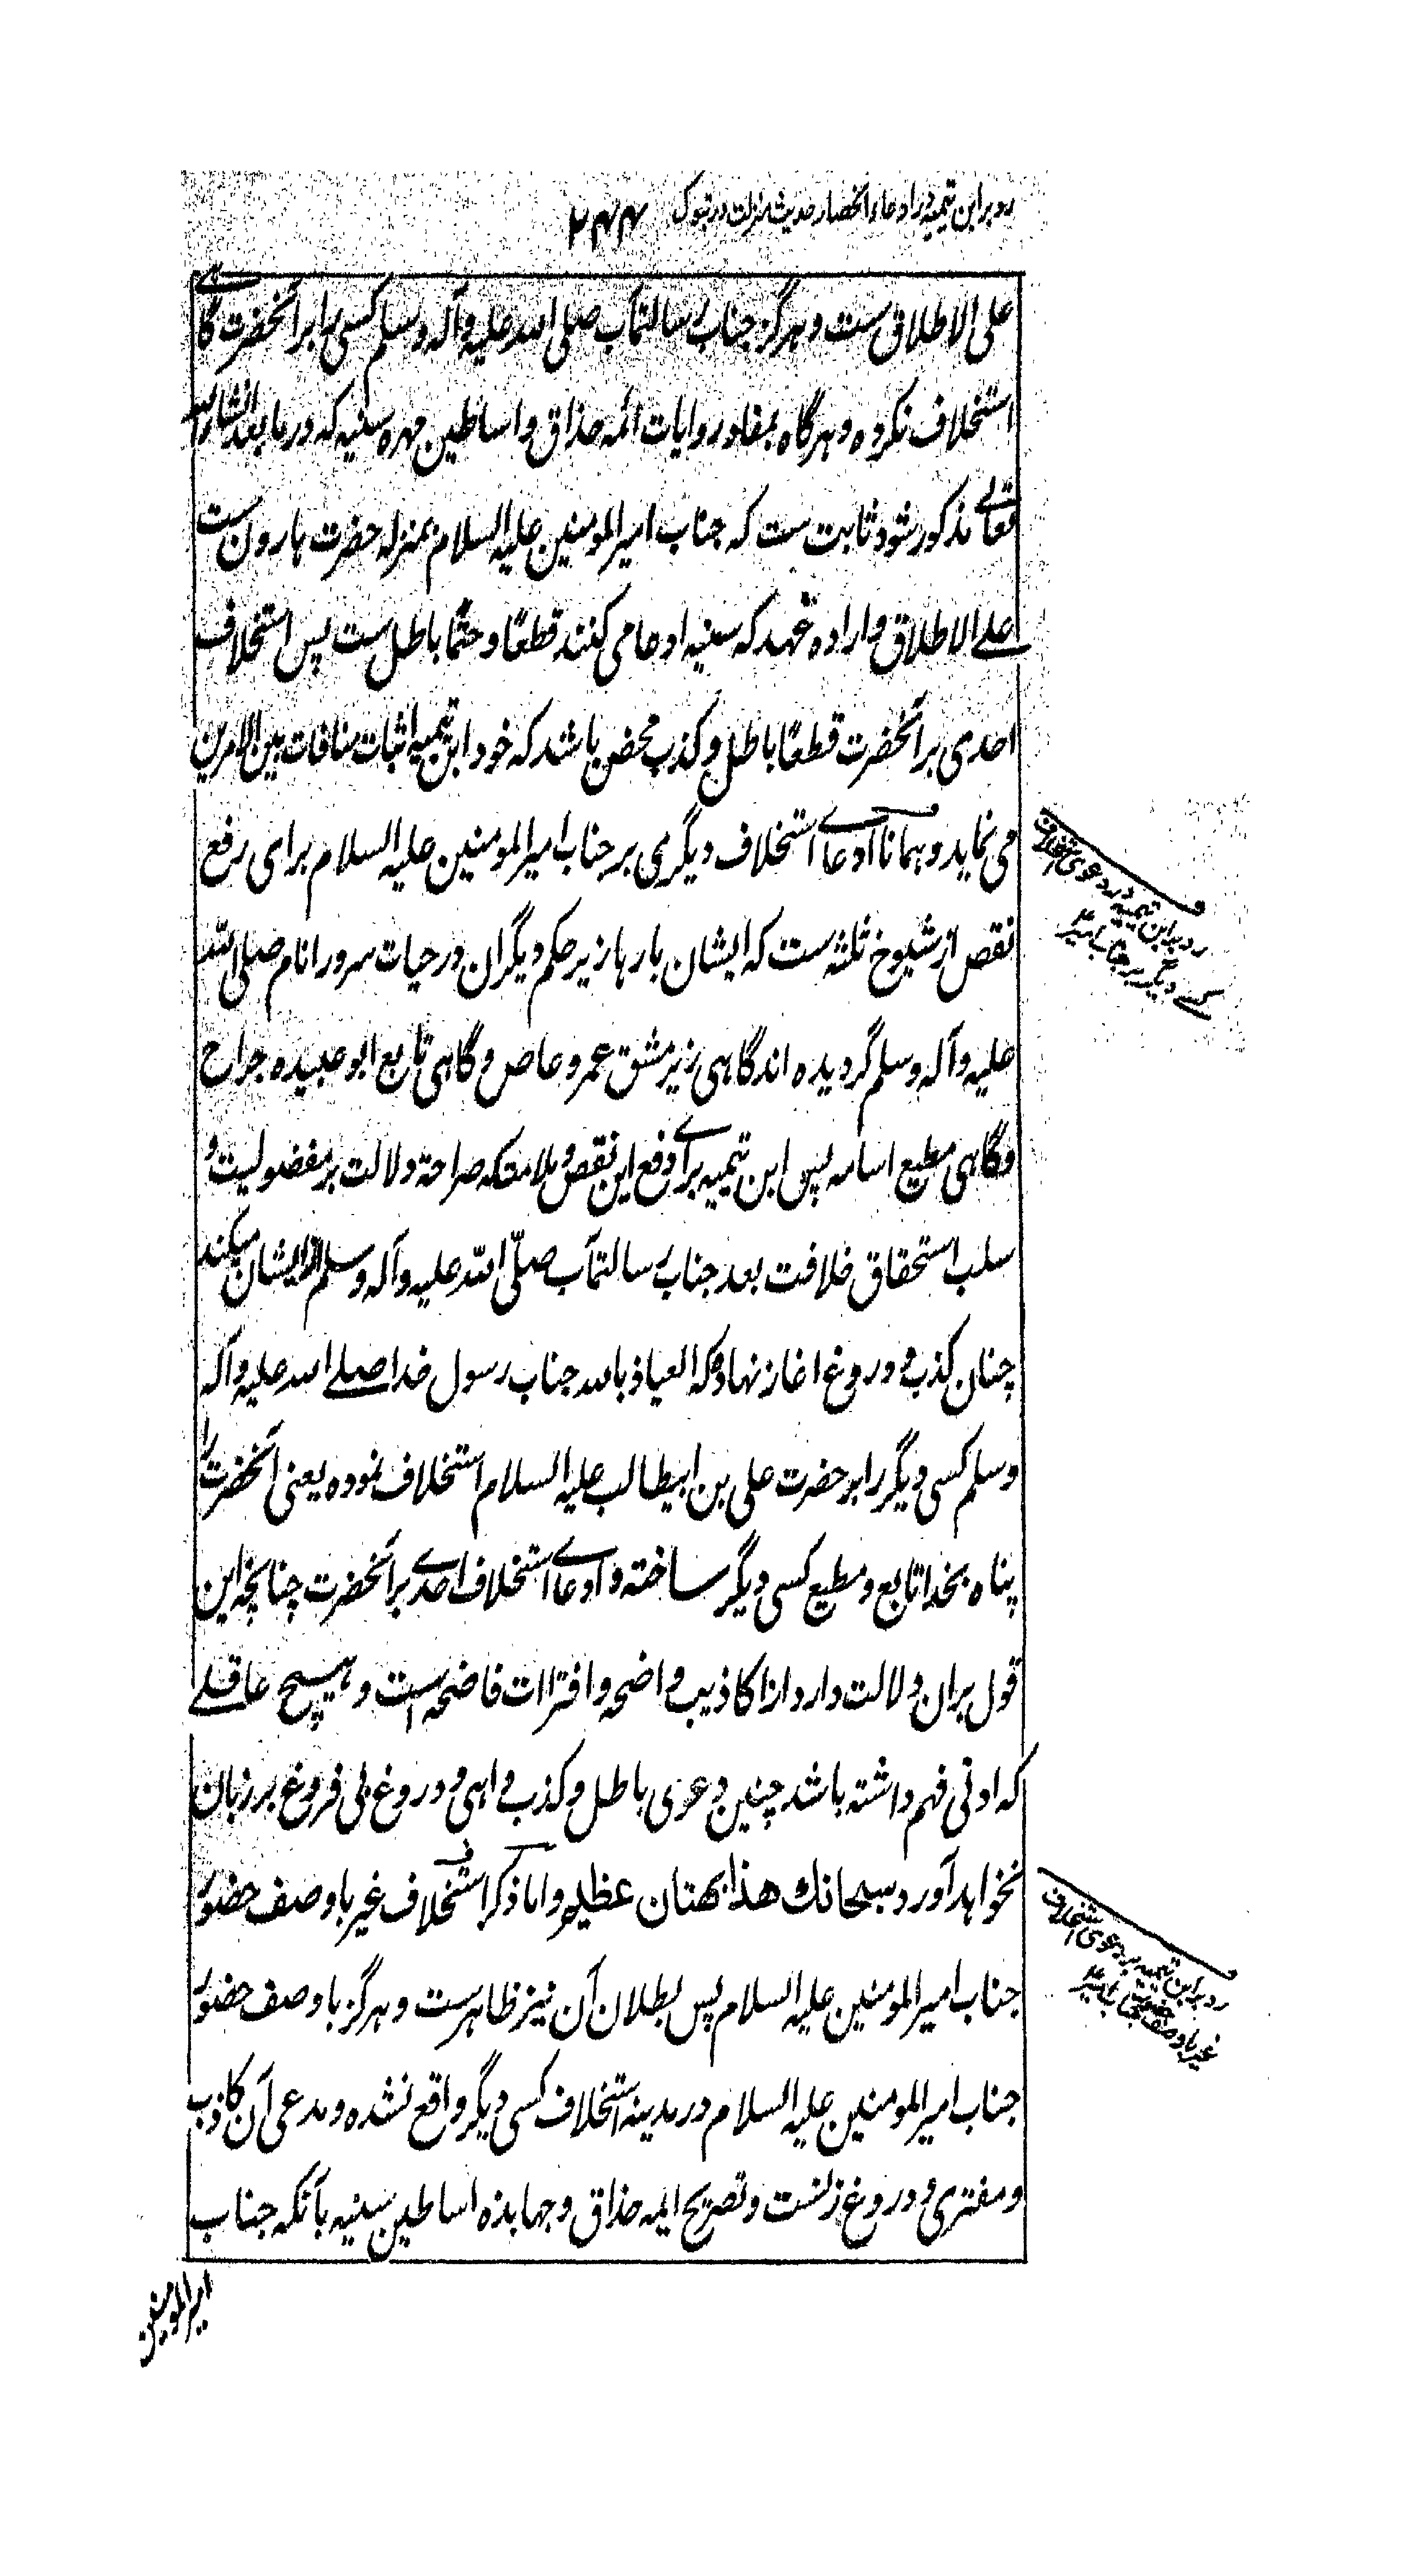 رد بر ابن تیمیه در ادعاء انحصار حدیث منزلت در تبوک
علی الاطلاق ست و هرگز جناب رسالتمآب صلی الله علیه و آله و سلم کسی را بر آنحضرت گاهے
استخلاف نکرده و هرگاه بمفاد روایات ائمه حذاق و اساطین مهره سنیه که در ما بعد انشاء الله
تعالے مذکور شود ثابت ست که جناب امیر المومنین علیه السلام بمنزله حضرت هارون ست
علے الاطلاق و اراده عهد که سنیه ادعا می کنند قطعًا و حتمًا باطل ست پس استخلاف
احدی بر آنحضرت قطعًا باطل و کذب محض باشد که خود ابن تیمیه اثبات منافات بین الامرین
می نماید و همانا ادعاے استخلاف دیگری بر جناب امیر المومنین علیه السلام برای رفع
نقص از شیوخ ثلثه ست که ایشان بارها زیر حکم دیگران در حیات سرور انام صلی الله
علیه و آله وسلم گردیده اند گاهی زیر مشق عمرو عاص و گاهی تابع ابو عبیده جراح
و گاهی مطیع اسامه پس ابن تیمیه براے دفع این نقص و ملامت که صراحة دلالت بر مفضولیت و
سلب استحقاق خلافت بعد جناب رسالتمآب صلّی الله علیه و آله و سلم از ایشان میکند
چنان کذب و دروغ اغاز نهاده که العیاذ بالله جناب رسول خدا صلے الله علیه و آله
وسلم کسی دیگر را بر حضرت علی بن ابیطالب علیه السلام استخلاف نموده یعنی آنحضرت را
پناه بخدا تابع و مطیع کسی دیگر ساخته و ادعاے استخلاف احدے بر آنحضرت چنانچه این
قول بران دلالت دارد از اکاذیب واضحه و افتراات فاضحه است و هیچ عاقلے
که ادنی فهم داشته باشد چنین دعوی باطل و کذب واهی و دروغ بی فروغ بر زبان
نخواهد آورد سبحانك هذا بهتان عظیم و اما ذکر استخلاف غیر با وصف حضور
جناب امیر المومنین علیه السلام پس بطلان آن نیز ظاهرست و هرگز با وصف حضور
جناب امیر المومنین علیه السلام در مدینه استخلاف کسی دیگر واقع نشده و مدعی آن کاذب
و مفتری و دروغ زنست و تصریح ایمه حذاق و جهابذه اساطین سنیه بآنکه جناب
امیر المومنین
رد بر ابن تیمیه در دعوی استخلاف
کسے دیگر بر جناب امیر ع
رد بر ابن تیمیه بر دعوی استخلاف
غیر با وصف حضور جناب امیر ع